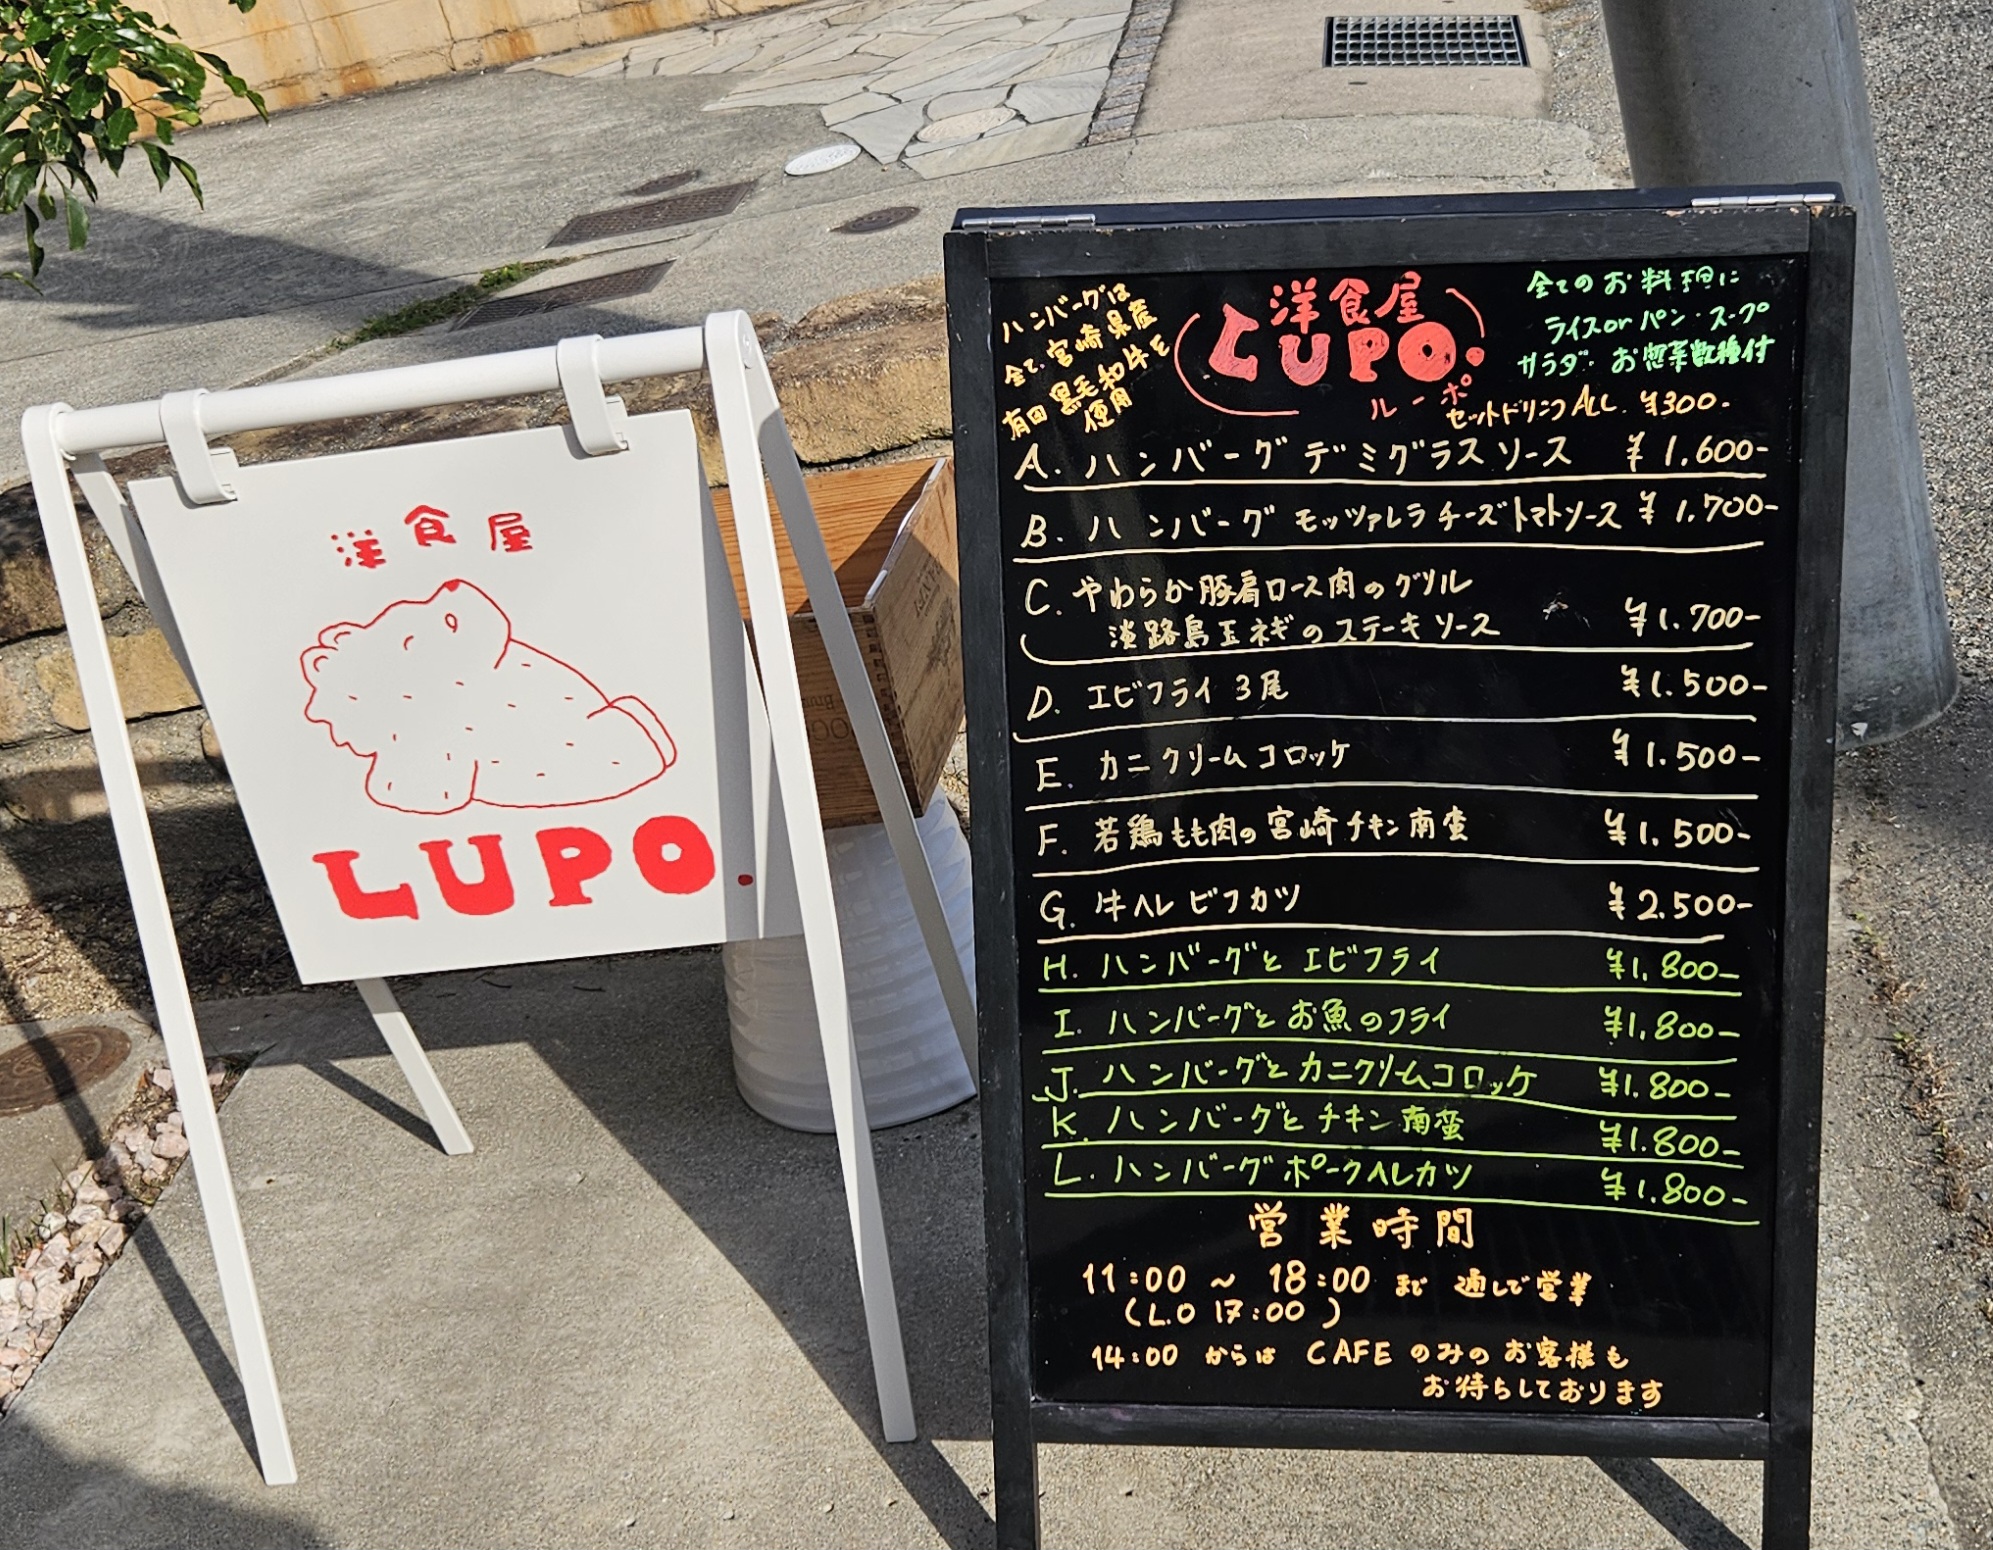 洋食屋
LUPO.
ハンバーグは
全て宮崎県産
有田黒毛和牛を
使用
洋食屋
LUPO.
ルーポ
全てのお料理に
ライスorパン・スープ
サラダ・お惣菜数種付
セットドリンクALL ¥300-
A. ハンバーグデミグラスソース ¥1.600-
B. ハンバーグモッツァレラチーズトマトソース ¥1.700-
C. やわらか豚肩ロース肉のグリル
淡路島玉ネギのステーキソース ¥1.700-
D. エビフライ 3尾 ¥1.500-
E. カニクリームコロッケ ¥1.500-
F. 若鶏もも肉の宮崎チキン南蛮 ¥1.500-
G. 牛ヘレビフカツ ¥2.500-
H. ハンバーグとエビフライ ¥1.800-
I. ハンバーグとお魚のフライ ¥1.800-
J. ハンバーグとカニクリームコロッケ ¥1.800-
K. ハンバーグとチキン南蛮 ¥1.800-
L. ハンバーグポークヘレカツ ¥1.800-
営業時間
11:00 ~ 18:00 まで 通しで営業
(L.O 17:00)
14:00 からは CAFE のみのお客様も
お待ちしております